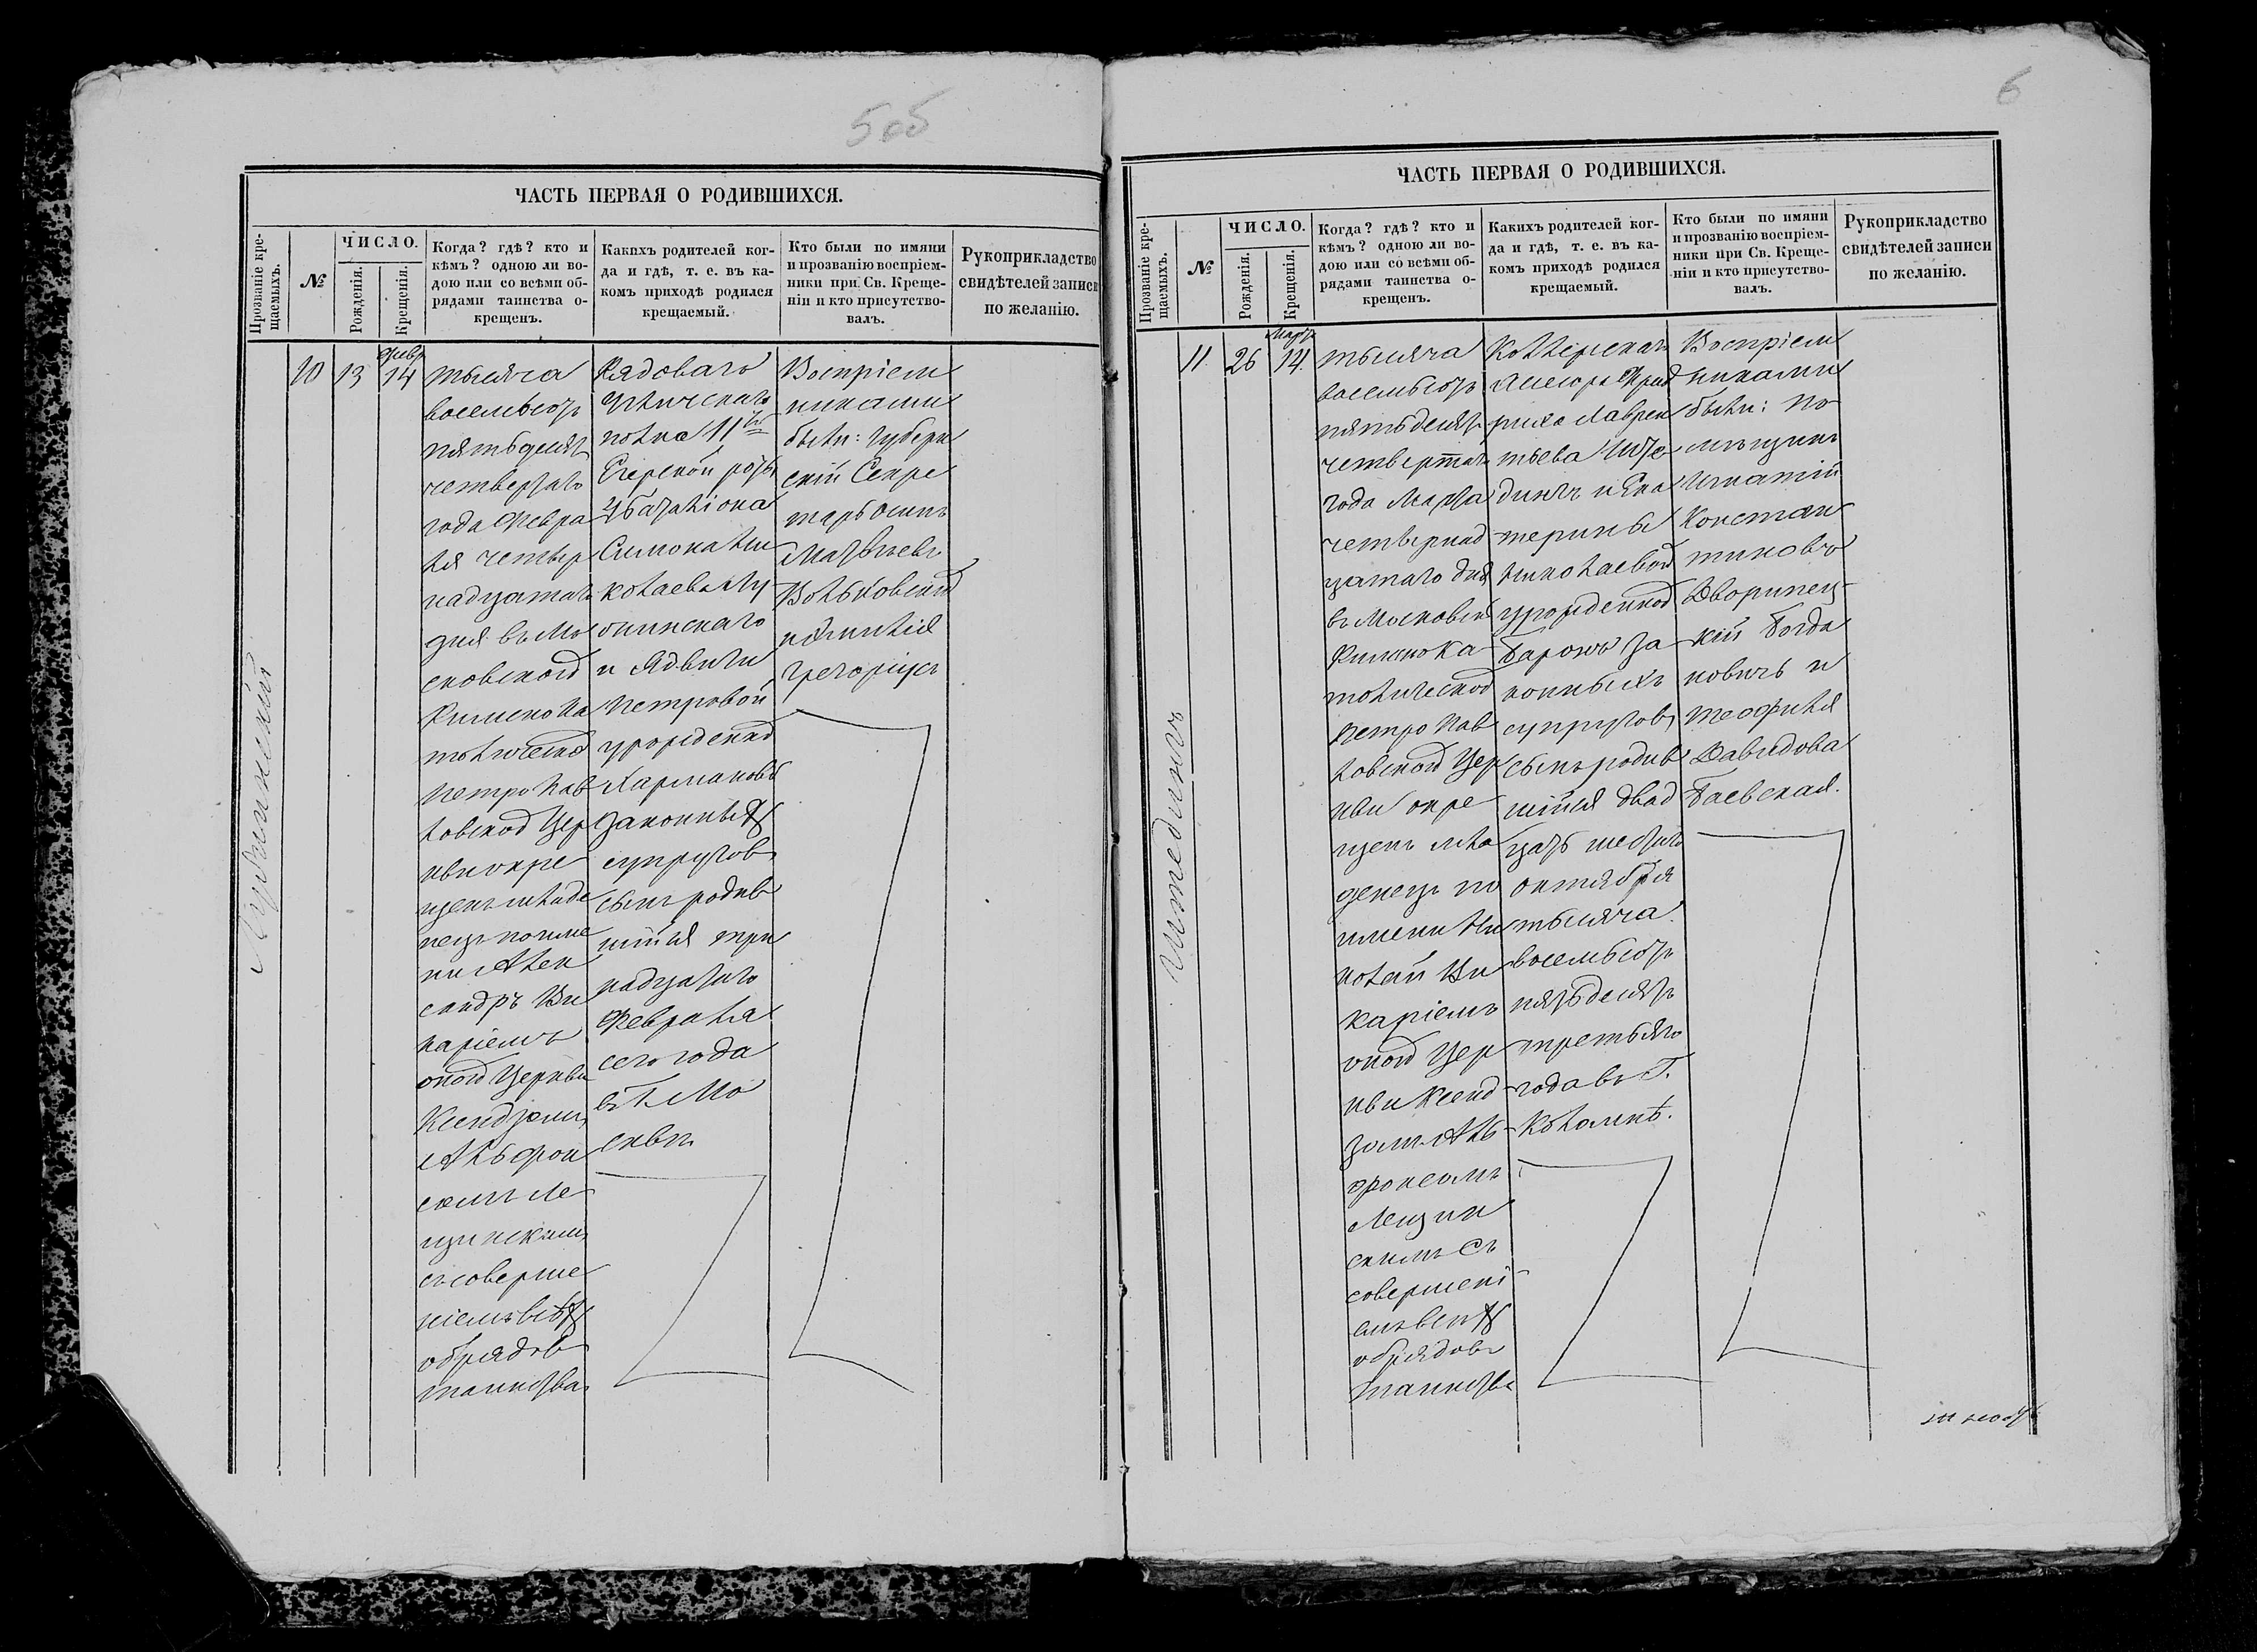 5 об
ЧАСТЬ ПЕРВАЯ О РОДИВШИХСЯ.
Прозваніе кре-
щаемыхъ.
№
ЧИСЛО.
Рожденія.
Крещенія.
Когда? гдѣ? кто и
кѣмъ? одною ли во-
дою или со всѣми об-
рядами таинства о-
крещенъ.
Какихъ родителей ког-
да и гдѣ, т. е. въ ка-
комъ приходѣ родился
крещаемый.
Кто были по имяни
и прозванію воспріем-
ники при Св. Креще-
ніи и кто присутство-
валъ.
Рукоприкладство
свидѣтелей записи
по желанію.
10
13
Февр
14
тысяча
восемьсотъ
пятьдесятъ
четвертаго
года Февра
ля четыр
надцатаго
дня въ Мо
сковской
Римско Ка
толической
Петро Пав
ловской Цер
кви окре
щенъ младе
нецъ по име
ни Алек
сандръ Ви
каріемъ
оной Церкви
Ксендзомъ
Альфон
сомъ Ле
щинскимъ
съ соверше
ніемъ всѣхъ
обрядовъ
таинства
Рядоваго
полка 11й
Егерской роты
4 баталіона
Симона Ни
колаева Лу
бинскаго
и Ядвиги
Петровой
урожденной
законныхъ
супруговъ
сынъ родив
шійся три
надцатаго
Февраля
сего года
въ Г. Мо
сквѣ.
Воспріем
никами
были: Губерн
скій Секре
тарь Осипъ
Матвѣевъ
Вольковскій
Грегоріусъ
6
ЧАСТЬ ПЕРВАЯ О РОДИВШИХСЯ.
Прозваніе кре-
щаемыхъ.
№
ЧИСЛО.
Рожденія.
Крещенія.
Когда? гдѣ? кто и
кѣмъ? одною ли во-
дою или со всѣми об-
рядами таинства о-
крещенъ.
Какихъ родителей ког-
да и гдѣ, т. е. въ ка-
комъ приходѣ родился
крещаемый.
Кто были по имяни
и прозванію воспріем-
ники при Св. Креще-
ніи и кто присутство-
валъ.
Рукоприкладство
свидѣтелей записи
по желанію.
Штединхъ
11.
26
Марта
14.
тысяча
восемьсотъ
пятьдесятъ
четвертаго
года Марта
четырнад
цатаго дня
въ Московской
Римско Ка
толической
Петро Пав
ловской Цер
кви окре
щенъ мла
денецъ по
имени Ни
колай Ви
каріемъ
оной Цер
кви Ксенд
зомъ Аль
фонсомъ
Лещин
скимъ съ
совершені
емъ всѣхъ
обрядовъ
таинства
Коллежскаго
Асесора Фрид
риха Лаврен
тьева Ште
динхъ и Ека
терины
Николаевой
урожденной
Баронъ за
конныхъ
супруговъ
сынъ родив
шійся двад
цать шестаго
октября
тысяча
восемьсотъ
пятьдесятъ
третьяго
года въ Г.
Коломнѣ.
Воспріем
никами
были: По
мѣщикъ
Игнатій
Констан
тиновъ
Дворжец-
кій Богда
новичъ и
Теофиля
Давидова
Баевская.